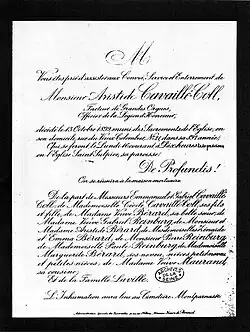 M
Vous êtes prié d'assister aux Convoi, Service et Enterrement de
Monsieur Aristide Cavaillé-Coll,
Facteur de Grandes Orgues,
Officier de la Légion d'Honneur,
décédé le 13 Octobre 1899 muni des Sacrements de l'Église, en
son domicile, rue du Vieux Colombier, dans sa année;
Qui se feront le Lundi courant à heures
en l'Église Saint Sulpice, sa paroisse.
De Profundis!
On se réunira à la maison mortuaire.
De la part de Messieurs Emmanuel et Gabriel Cavaillé-
Coll, de Mademoiselle Cécile Cavaillé-Coll, ses fils
et fille, de Madame Veuve Bérard, sa belle sœur, de
Madame Veuve Reinburg, de Monsieur et
Madame Aristide Bérard, de Mesdemoiselles
et Emma Bérard, de Monsieur Reinburg,
de Mademoiselle Reinburg, de Mademoiselle
Marguerite Bérard, ses neveux, nièces, petits neveux
et petites nièces, de Madame Veuve
sa cousine;
Et de la Famille Laville.
L'Inhumation aura lieu au Cimetière Montparnasse.